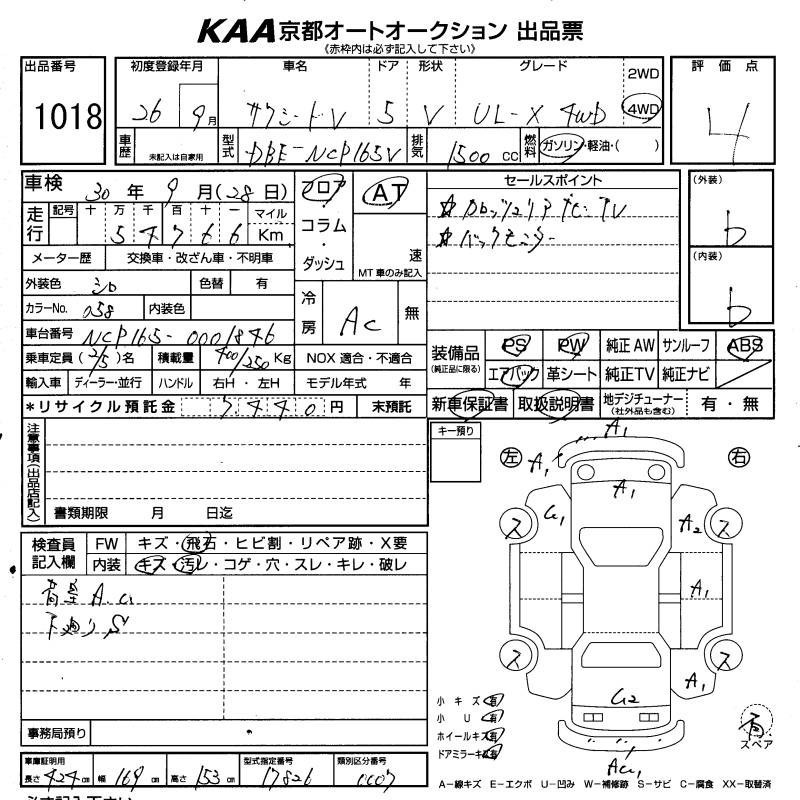 KAA京都オートオークション 出品票
(赤枠内は必ず記入して下さい)
出品番号 1018
初度登録年月 26 9月
車名 サクシードV
ドア 5
形状 V
グレード UL-X 4WD
2WD
4WD
評価点 4
車歴 未記入は自家用
型式 DBE-NCP165V
排気 1500 CC
燃料 ガソリン・軽油・( )
車検 30年 9月(28日)
走行 記号 十 万 千 百 十 一 マイル
5 4 7 6 6 Km
メーター歴 交換車・改ざん車・不明車
外装色 シロ
色替 有
カラーNo. 058
内装色
車台番号 NCP165-0001846
乗車定員 (2/5)名
積載量 400/250 Kg
NOX 適合・不適合
輸入車 ディーラー・並行 ハンドル 右H・左H モデル年式 年
*リサイクル預託金 7440円 未預託
フロア・コラム・ダッシュ
AT
速
MT車のみ記入
冷房 AC 無
セールスポイント
☆ナビ TV
☆バックモニター
(外装) b
(内装) b
装備品 (純正品に限る)
PS PW 純正AW サンルーフ ABS
エアバック 革シート 純正TV 純正ナビ
新車保証書 取扱説明書 地デジチューナー(社外品も含む) 有・無
注意事項(出品店記入)
書類期限 月 日迄
キー預り
左 右
A1
A1
A1
G1
A2
A1
A1
G2
ス ス ス ス
検査員記入欄
FW キズ・飛石・ヒビ割・リペア跡・X要
内装 キズ・汚レ・コゲ・穴・スレ・キレ・破レ
荷室 A.U
下廻り S
事務局預り
小キズ 有
小U 有
ホイールキズ 有
ドアミラーキズ 有
スペア
車庫証明用 長さ 424cm 幅 169cm 高さ 153cm
型式指定番号 17826
類別区分番号 0007
A-線キズ E-エクボ U-凹み W-補修跡 S-サビ C-腐食 XX-取替済